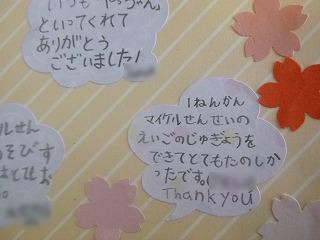 いつも
といってくれて
ありがとう
ございました!
1ねんかん
マイケルせんせいの
えいごのじゅぎょうを
できてとてもたのしか
ったです。
Thank you!
ルせん
そびす